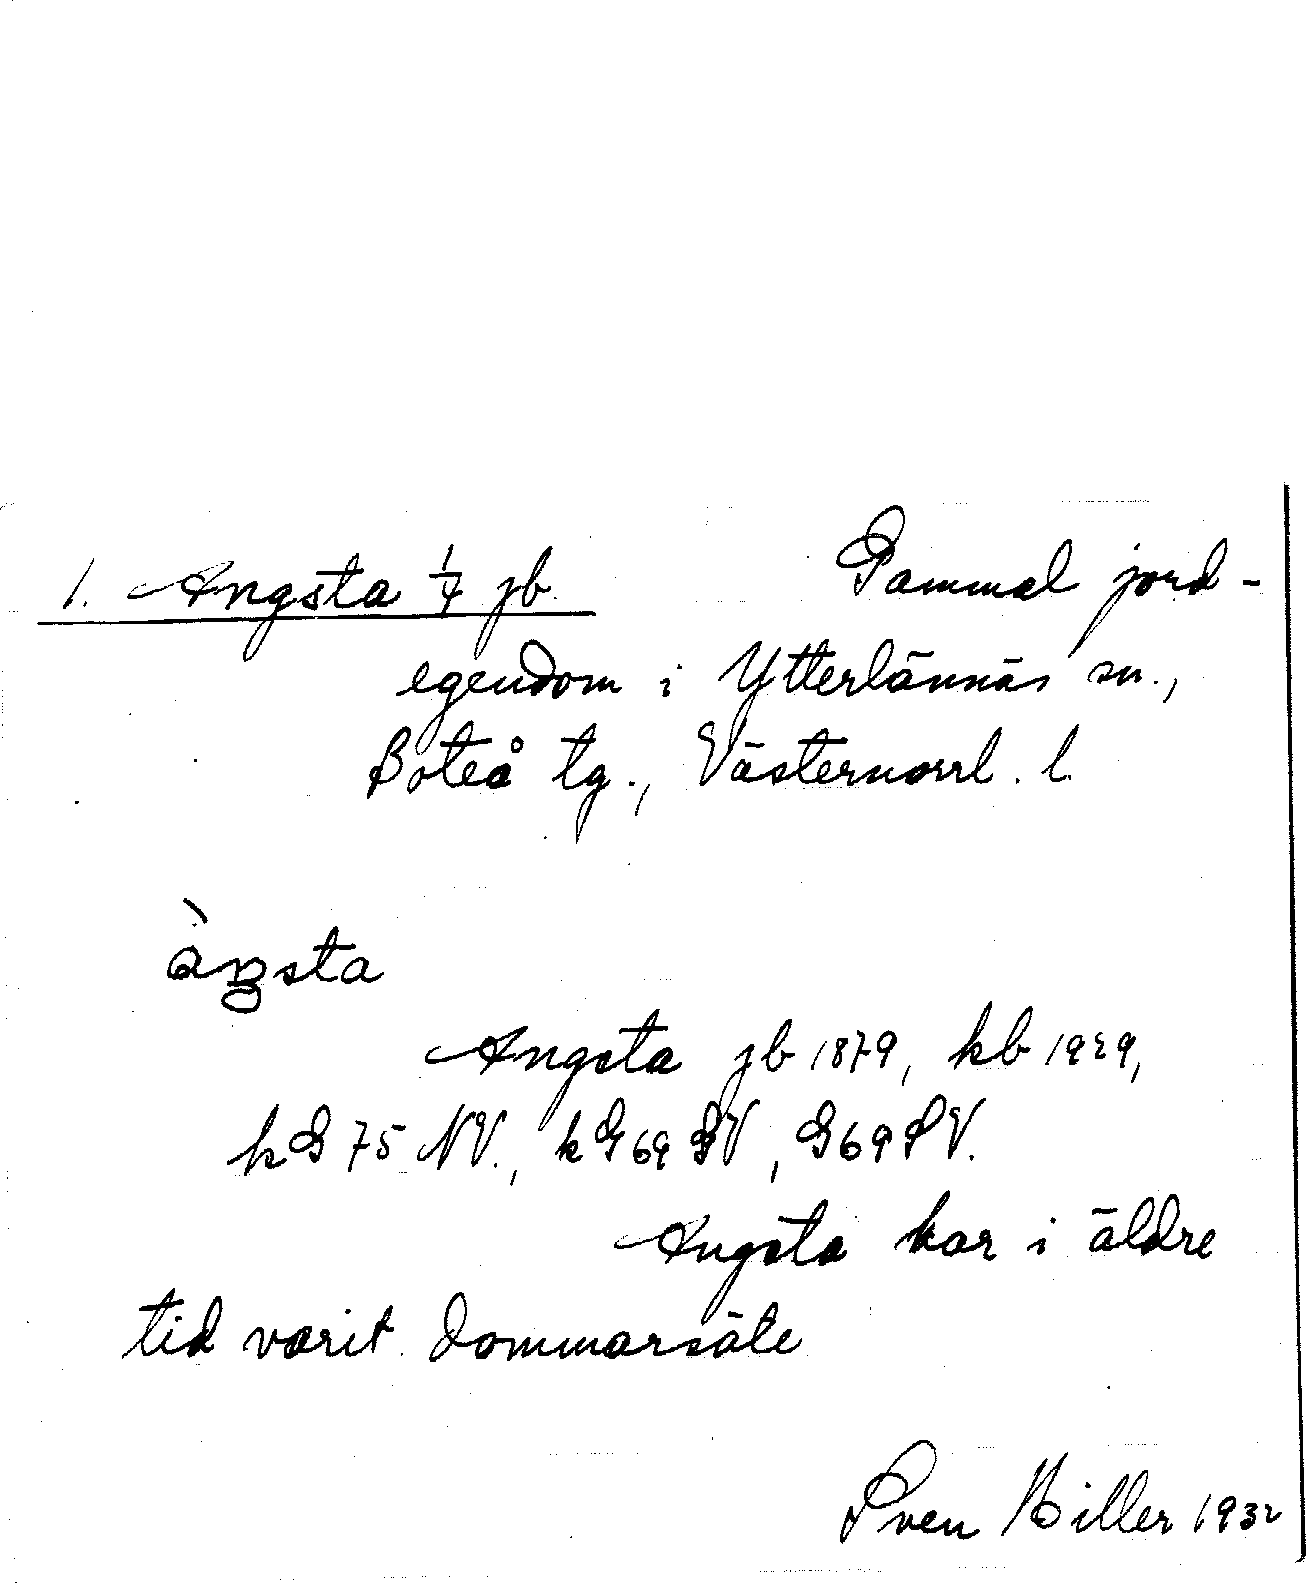 1. Angsta 1/7 jb. Gammal jord-
egendom i Ytterlännäs sn.,
Boteå tg., Västernorrl. l.
àŋsta
Angsta jb 1879, kb 1929,
kG 75 NV., kG 69 SV, G 69 SV.
Angsta har i äldre
tid varit dommarsäte
Sven Hiller 1932